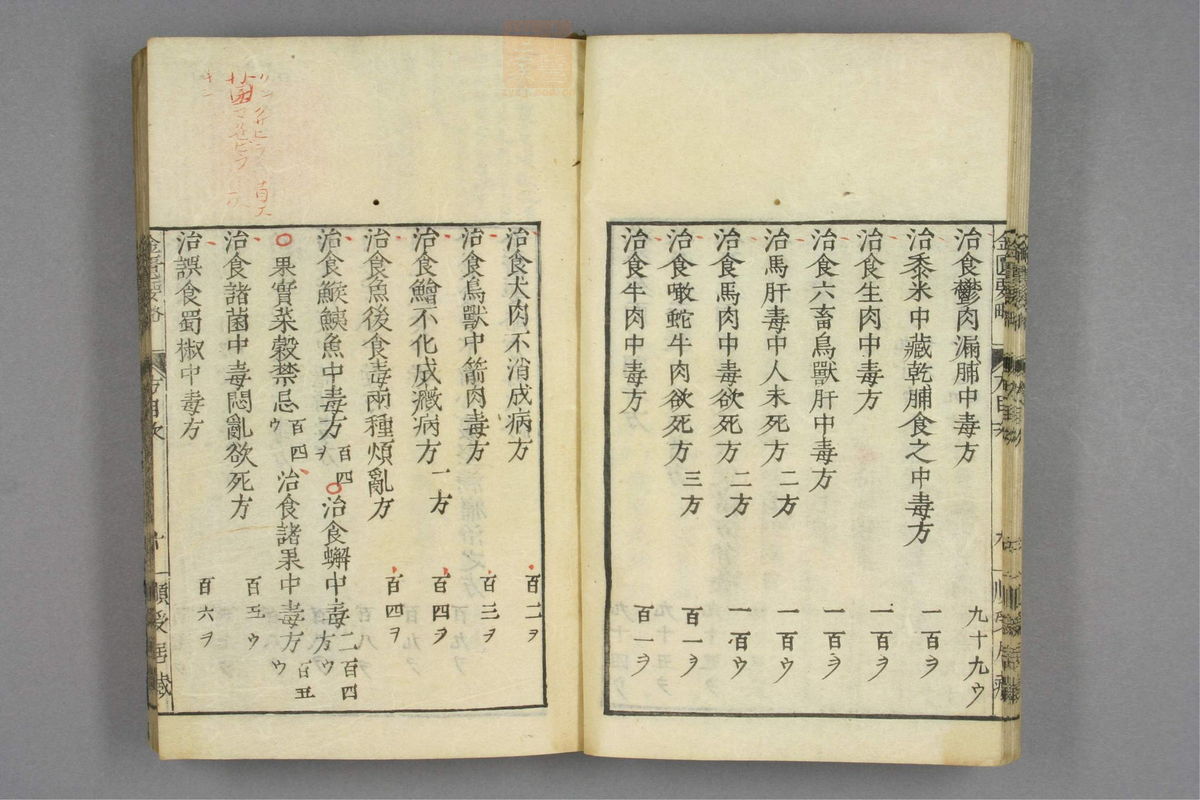 治食鬱肉漏脯中毒方 九十九ウ
治黍米中藏乾脯食之中毒方 一百ヲ
治食生肉中毒方 一百ヲ
治食六畜鳥獸肝中毒方 一百ウ
治馬肝毒中人未死方 二方 一百ウ
治食馬肉中毒欲死方 二方 一百ウ
治食噉蛇牛肉欲死方 三方 百一ヲ
治食牛肉中毒方 百一ヲ
治食犬肉不消成病方 百二ヲ
治食鳥獸中箭肉毒方 百三ヲ
治食鱠不化成癥病方 一方 百四ヲ
治食魚後食毒兩種煩亂方 百四ヲ
治食鯸鮧魚中毒方 百四ヲ ○治食蟹中毒方 二百四ウ
○果實菜穀禁忌 百四ウ 治食諸果中毒方 百五ウ
治食諸菌中毒悶亂欲死方 百五ウ
治誤食蜀椒中毒方 百六ヲ
金匱要略 方目次 十 順受居藏